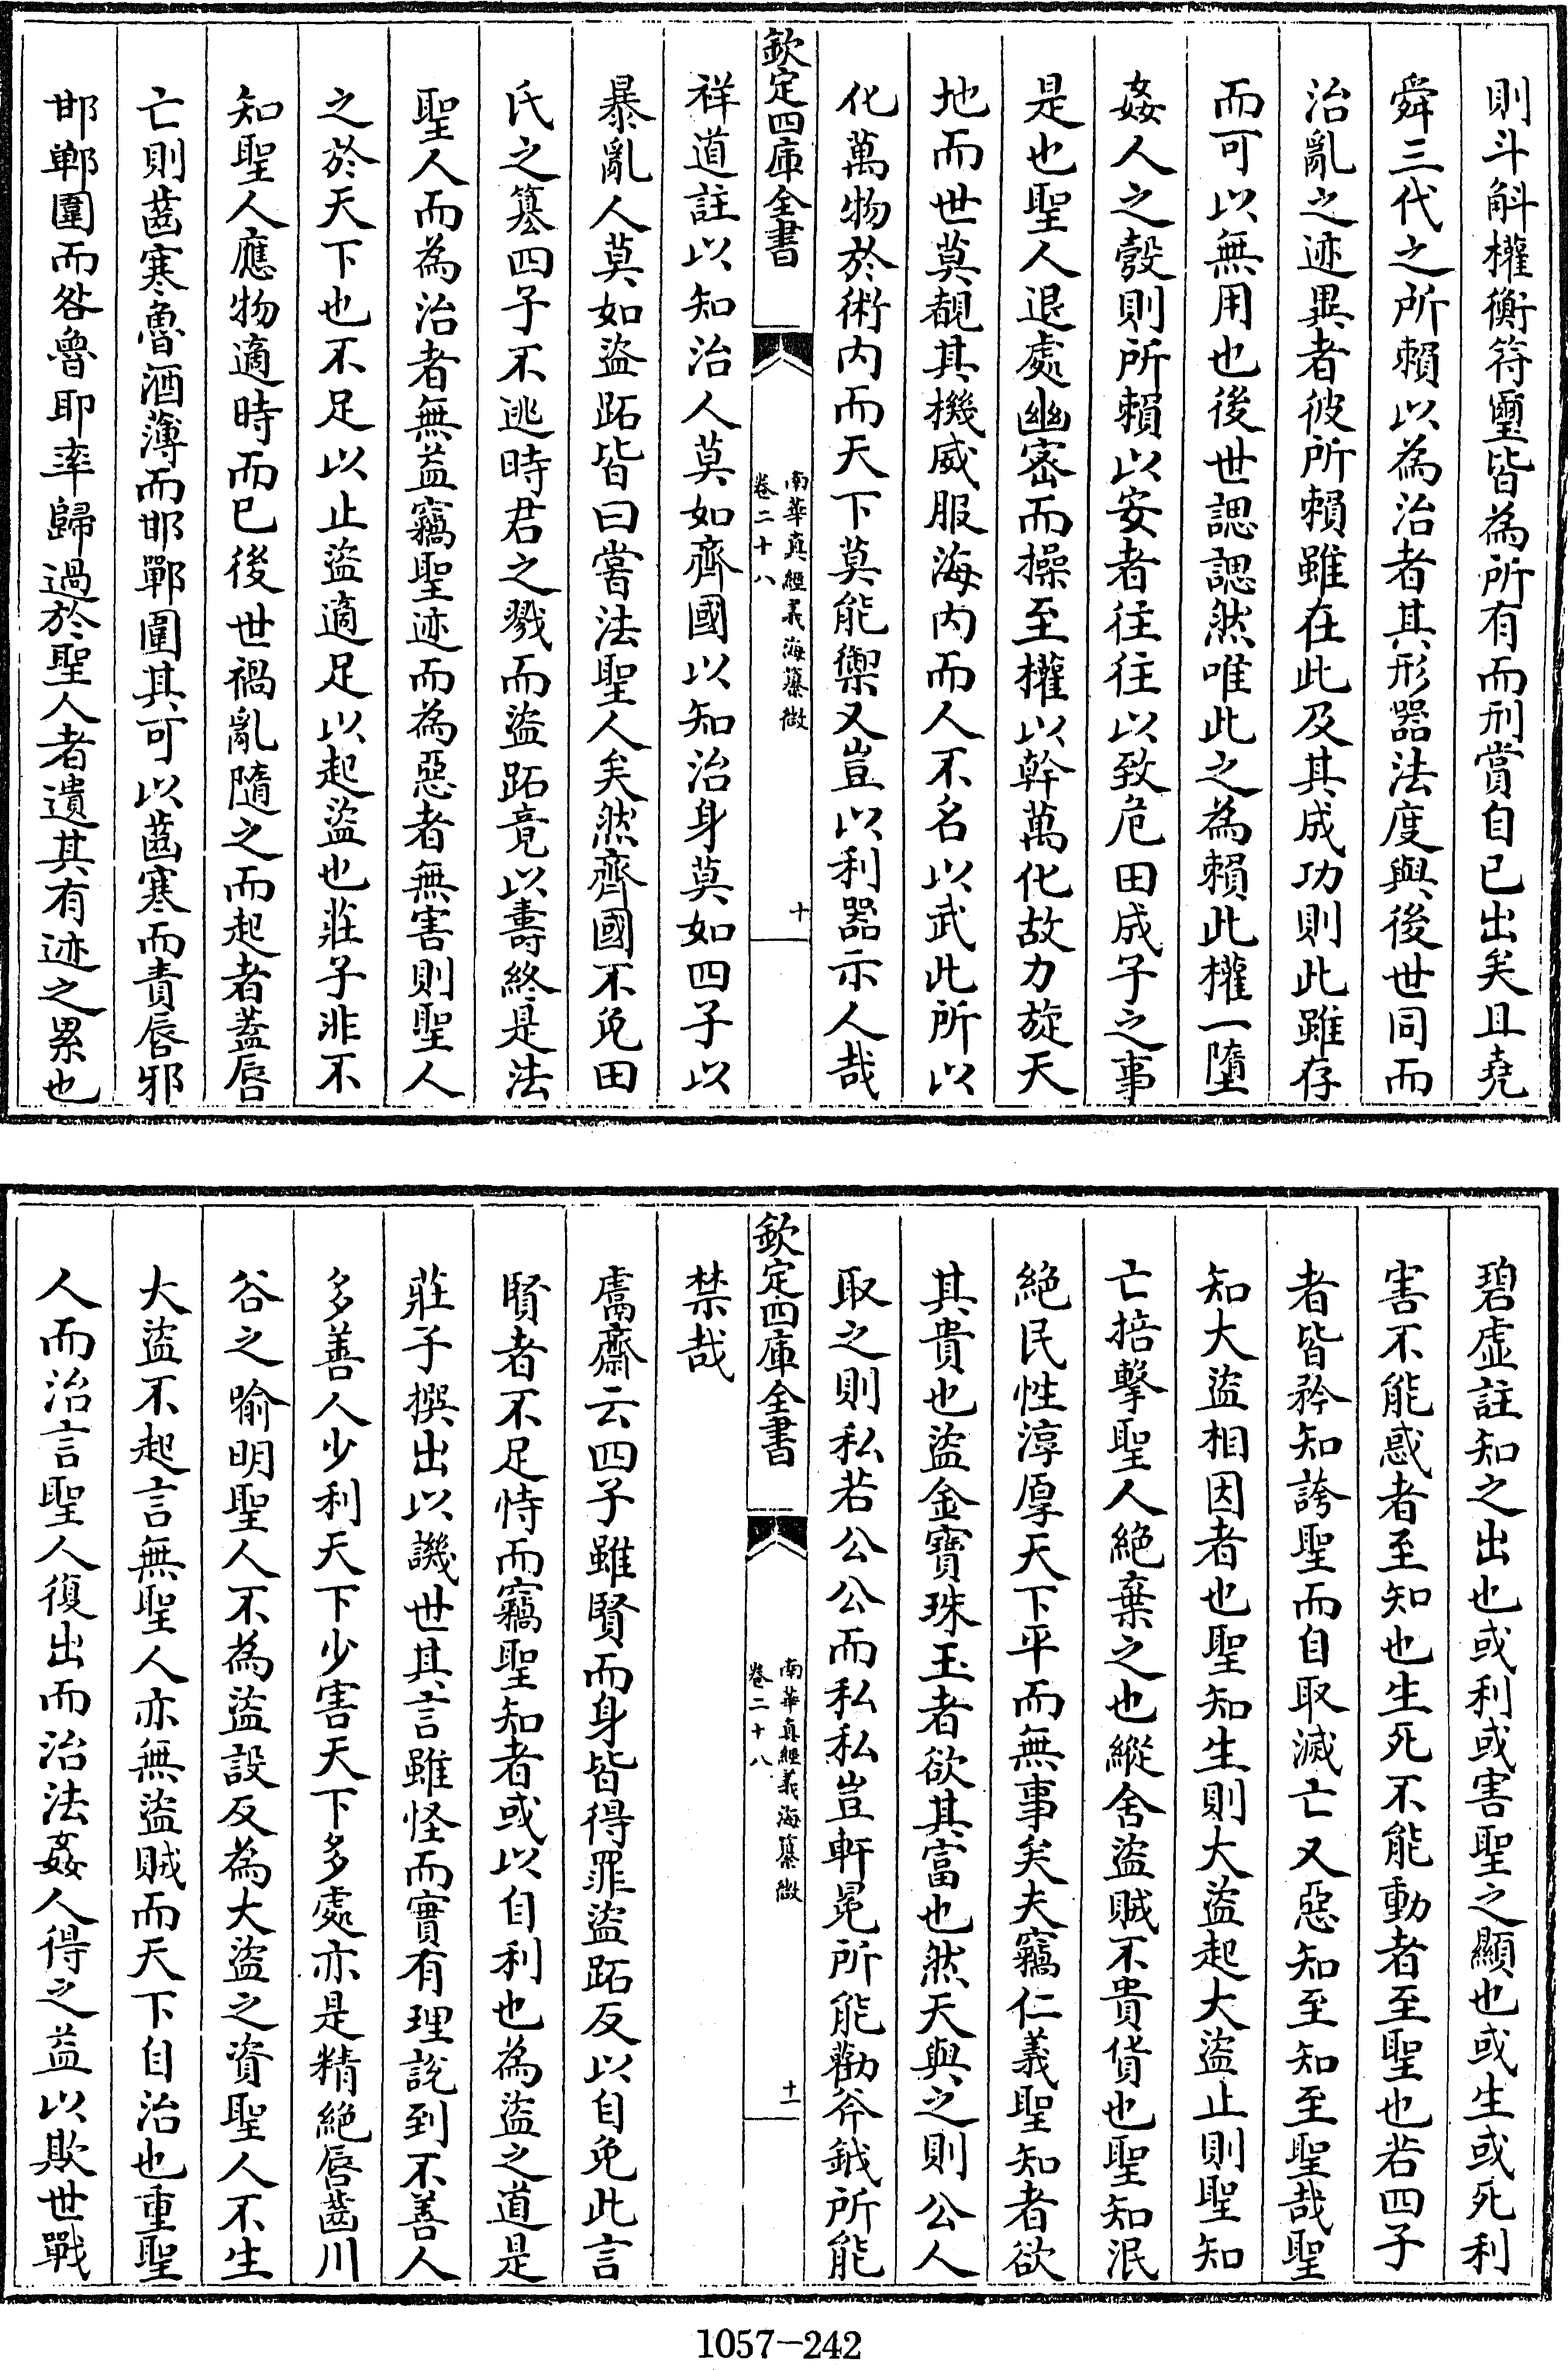 則斗斛權衡符璽皆為所有而刑賞自已出矣且堯
舜三代之所賴以為治者其形器法度與後世同而
治亂之迹異者彼所賴雖在此及其成功則此雖存
而可以無用也後世諰諰然唯此之為賴此權一墮
姦人之彀則所賴以安者往往以致危田成子之事
是也聖人退處幽宻而操至權以斡萬化故力旋天
地而世莫覩其機威服海内而人不名以武此所以
化萬物於術内而天下莫能禦又豈以利器示人哉
欽定四庫全書
南華真經義海纂微
卷二十八
十
祥道註以知治人莫如齊國以知治身莫如四子以
暴亂人莫如盜跖皆曰嘗法聖人矣然齊國不免田
氏之簒四子不逃時君之戮而盜跖竟以壽終是法
聖人而為治者無益竊聖迹而為惡者無害則聖人
之於天下也不足以止盜適足以起盜也莊子非不
知聖人應物適時而已後世禍亂隨之而起者蓋唇
亡則齒寒魯酒薄而邯鄲圍其可以齒寒而責唇邪
邯鄲圍而咎魯耶率歸過於聖人者遺其有迹之累也
碧虛註知之出也或利或害聖之顯也或生或死利
害不能惑者至知也生死不能動者至聖也若四子
者皆矜知誇聖而自取滅亡又惡知至知至聖哉聖
知大盜相因者也聖知生則大盜起大盜止則聖知
亡掊擊聖人絶棄之也縱舍盜賊不貴貨也聖知泯
絶民性淳厚天下平而無事矣夫竊仁義聖知者欲
其貴也盜金寶珠玉者欲其富也然天與之則公人
取之則私若公公而私私豈軒冕所能勸斧鉞所能
欽定四庫全書
南華真經義海纂微
卷二十八
十一
禁哉
鬳齋云四子雖賢而身皆得罪盜跖反以自免此言
賢者不足恃而竊聖知者或以自利也為盜之道是
莊子撰出以譏世其言雖怪而實有理說到不善人
多善人少利天下少害天下多處亦是精絶唇齒川
谷之喻明聖人不為盜設反為大盜之資聖人不生
大盜不起言無聖人亦無盜賊而天下自治也重聖
人而治言聖人復出而治法姦人得之益以欺世戰
1057-242